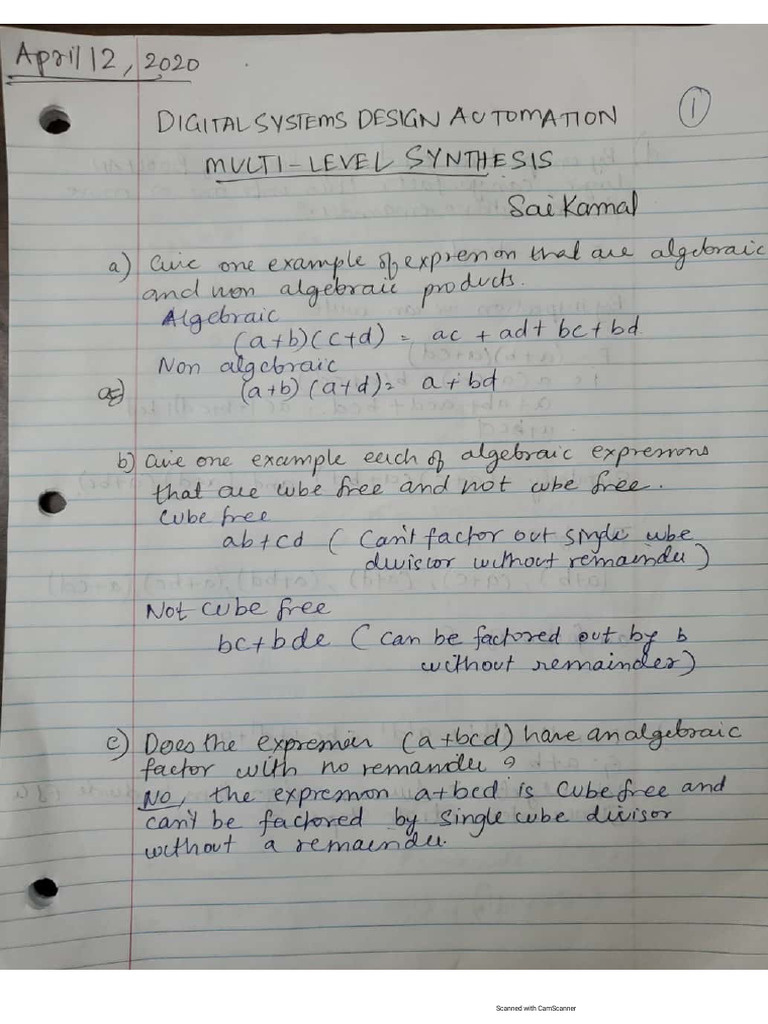 April 12, 2020
1
DIGITAL SYSTEMS DESIGN AUTOMATION
MULTI-LEVEL SYNTHESIS
Sai Kamal
a) Give one example of expression that are algebraic
and non algebraic products.
Algebraic
(a+b)(c+d) = ac + ad + bc + bd
Non algebraic
(a+b) (a+d) = a + bd
b) Give one example each of algebraic expressions
that are cube free and not cube free.
Cube free
ab+cd ( Can't factor out single cube
divisor without remainder )
Not cube free
bc+bde ( can be factored out by b
without remainder)
c) Does the expression (a+bcd) have an algebraic
factor with no remainder ?
No, the expression a+bcd is Cube free and
can't be factored by single cube divisor
without a remainder.
Scanned with CamScanner